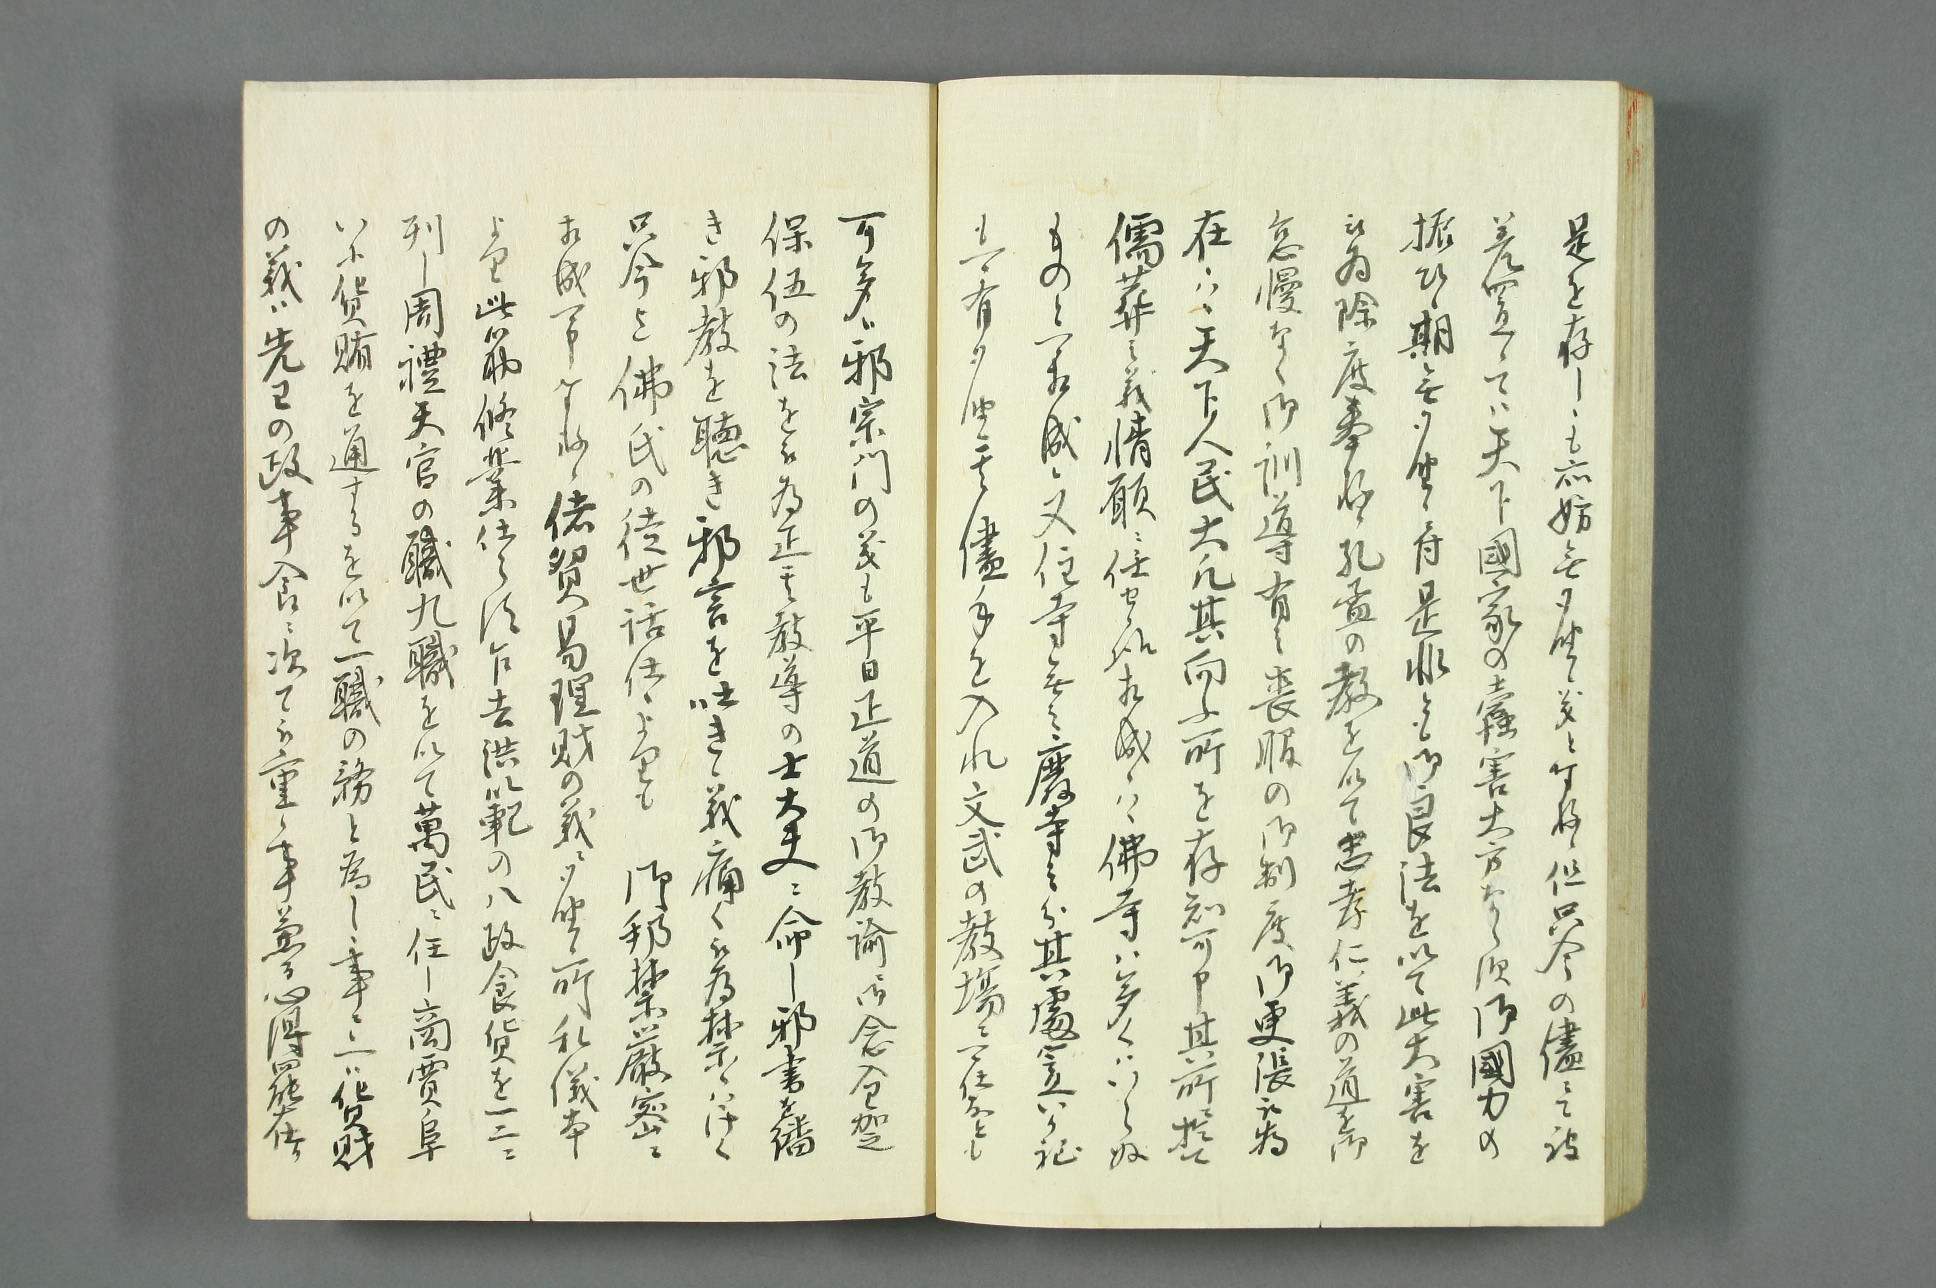 是を存しも亦妨無御座義と奉存候但只今の儘にて被
差置候ては天下國家の蠧害大方ならす御國力の
振ひ候期無御座候付是非とも御良法を以て此大害を
被為除度奉存候孔孟の教を以て忠孝仁義の道を御
怠慢なく御訓導有之喪服の御制度御更張被為
在候はゝ天下人民大凡其向ふ所を存知可申其所にて
儒葬之義情願に任せ候様相成候はゝ佛寺は多くはいらぬ
ものと可相成候又住寺無之廢寺之分其處置いか
も可有御座其儘手を入れ文武の教場に可仕なとも
可多候邪宗門の義も平日正道の御教諭に御念入盤
保伍の法を被為正其教導の士大夫に命し邪書を繙
き邪教を聴き邪言を吐き候義痛く被為禁候はゝ
只今迄佛氏の徒世話仕候よりも 御邪禁厳密に
相成可申奉存候偖貿易理財の義に御座候所私儀本
より此筋修業仕らす候乍去洪範の八政食貨を一二に
列し周禮天官の職九職を以て萬民に任し商賈阜
いに貨賄を通するを以て一職の務と為し候事に候へは貨財
の義は先王の政事食に次て被重候事兼て心得罷在候